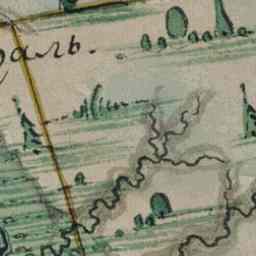 даль.